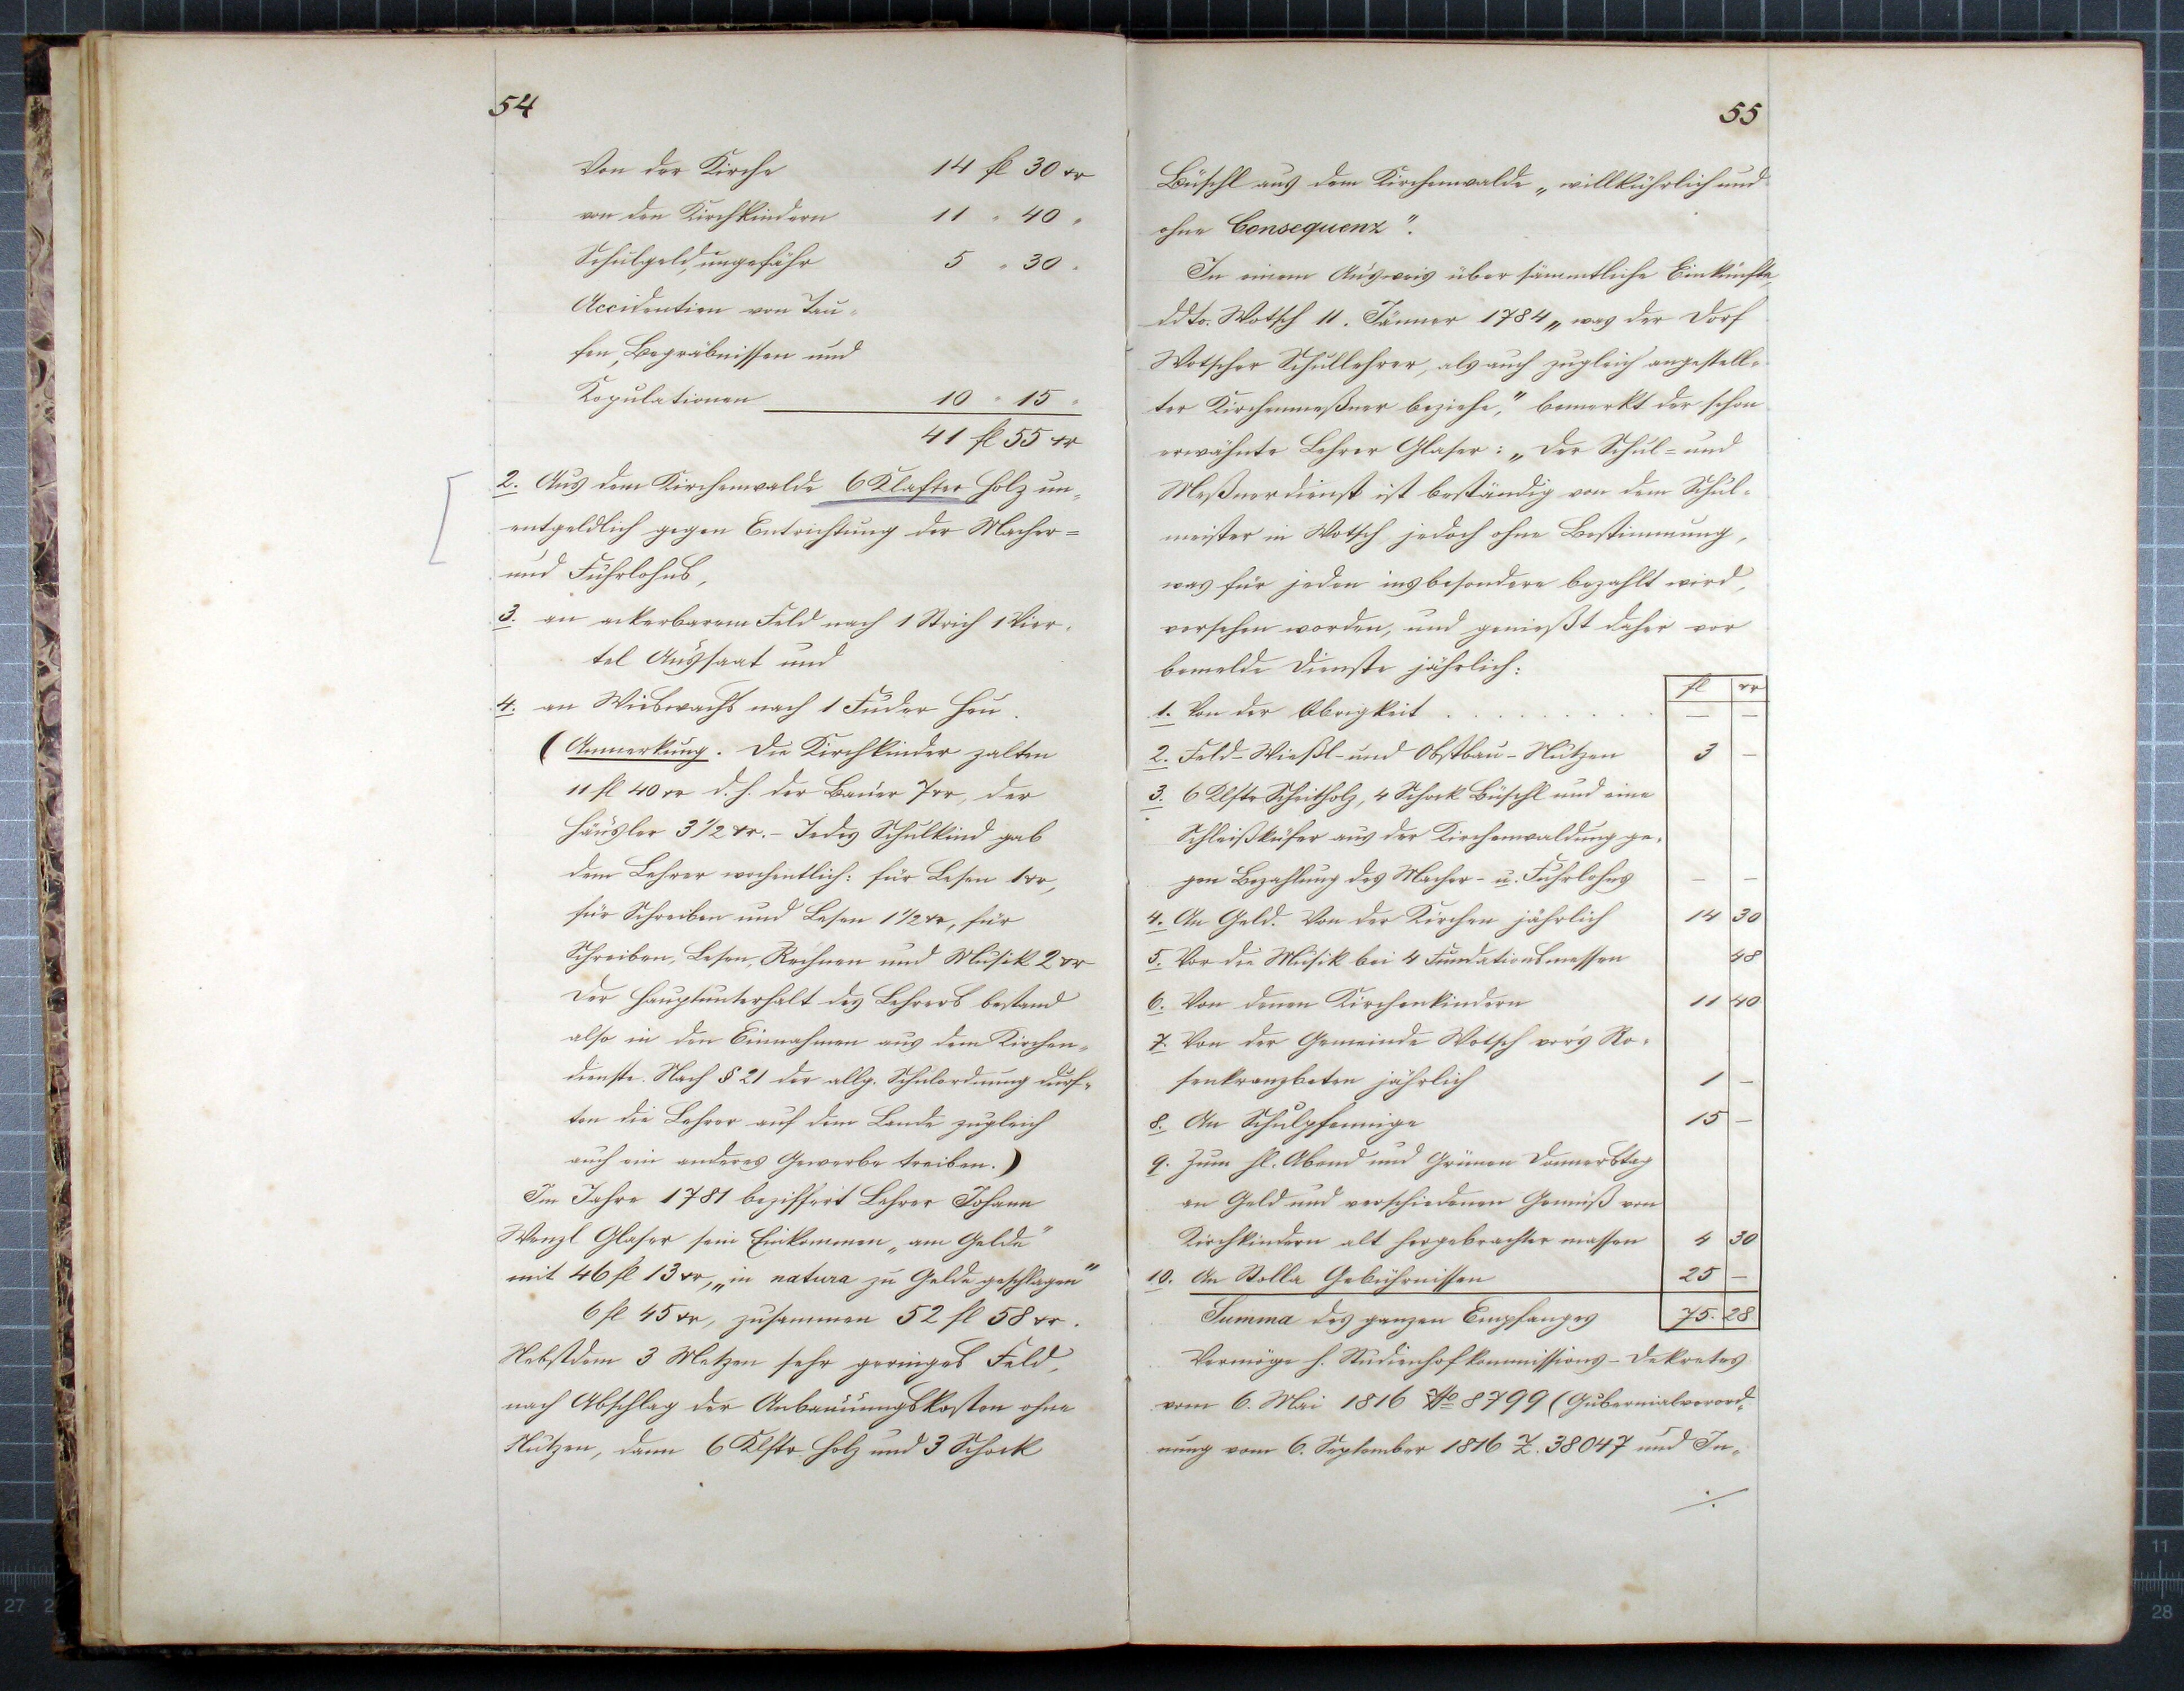 54
Von der Kirche 14 fl 30 xr
von den Kirchkindern 11 " 40 "
Schulgeld, ungefähr 5 " 30 "
Accidentien von Tau-
fen, Begräbnissen und
Kopulationen 10 " 15 "
41 fl 55 xr
2. Aus dem Kirchenwalde 6 Klafter Holz un-
entgeldlich gegen Entrichtung der Macher=
und Fuhrlohns,
3. an ackerbarem Feld nach 1 Strich 1 Vier-
tel Aussaat und
4. an Wieswachs nach 1 Fuder Heu.
(Anmerkung. Die Kirchkinder zalten
11 fl 40 xr d. h. der Bauer 7 xr, der
Häusler 3 1/2 xr. – Jedes Schulkind gab
dem Lehrer wochentlich: für Lesen 1 xr,
für Schreiben und Lesen 1 1/2 xr, für
Schreiben, Lesen, Rechnen und Musik 2 xr
Der Hauptunterhalt des Lehrers bestand
also in den Einnahmen aus dem Kirchen-
dienste. Nach § 21 der allg. Schulordnung durf-
ten die Lehrer auf dem Lande zugleich
auch ein anderes Gewerbe treiben.)
Im Jahre 1781 beziffert Lehrer Johann
Wenzl Glaser sein Einkommen „am Gelde"
mit 46 fl 13 xr, „in natura zu Gelde geschlagen"
6 fl 45 xr, zusammen 52 fl 58 xr.
Nebstdem 3 Metzen sehr geringes Feld,
nach Abschlag der Anbauungskosten ohne
Nutzen, dann 6 Klftr. Holz und 3 Schock
55
Büschl aus dem Kirchenwalde „willkührlich und
ohne Consequenz".
In einem Ausweis über sämmtliche Einkünfte,
ddto. Wotsch 11. Jänner 1784 „was der Dorf
Wotscher Schullehrer, als auch zugleich angestell-
ter Kirchenmeßner beziehe," bemerkt der schon
erwähnte Lehrer Glaser: „Der Schul= und
Meßnerdienst ist beständig von dem Schul-
meister in Wotsch jedoch ohne Bestimmung,
was für jeden insbesondere bezahlt wird,
versehen worden, und genießt daher vor
bemelde Dienste jährlich:
fl xr
1. Von der Obrigkeit . . . . . . . . — —
2. Feld- Wießl- und Obstbau-Nutzen 3 —
3. 6 Klftr Scheitholz, 4 Schock Büschl und eine
Schleißkiefer aus der Kirchenwaldung ge-
gen Bezahlung des Macher- u. Fuhrlohns — —
4. An Geld. Von der Kirchen jährlich 14 30
5. Vor die Musik bei 4 Fundationsmessen 48
6. Von denen Kirchenkindern 11 40
7. Von der Gemeinde Wotsch vor's Ro-
senkranzbeten jährlich 1 —
8. An Schulpfennige 15 —
9. Zum hl. Abend und Grünen Donnerstag
an Geld und verschiedenen Gemüß von
Kirchkindern alt hergebrachter massen 4 30
10. An Stolla Gebührnissen 25 —
Summa des ganzen Empfanges 75. 28
Vermöge h. Studienhofkommissions-Dekretes
vom 6. Mai 1816 No 8799 (Gubernialverord-
nung vom 6. September 1816 Z. 38047 und In-
./.
27
11
28